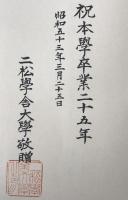 祝本學卒業二十五年
昭和五十三年三月二十五日
二松學舍大學敬贈